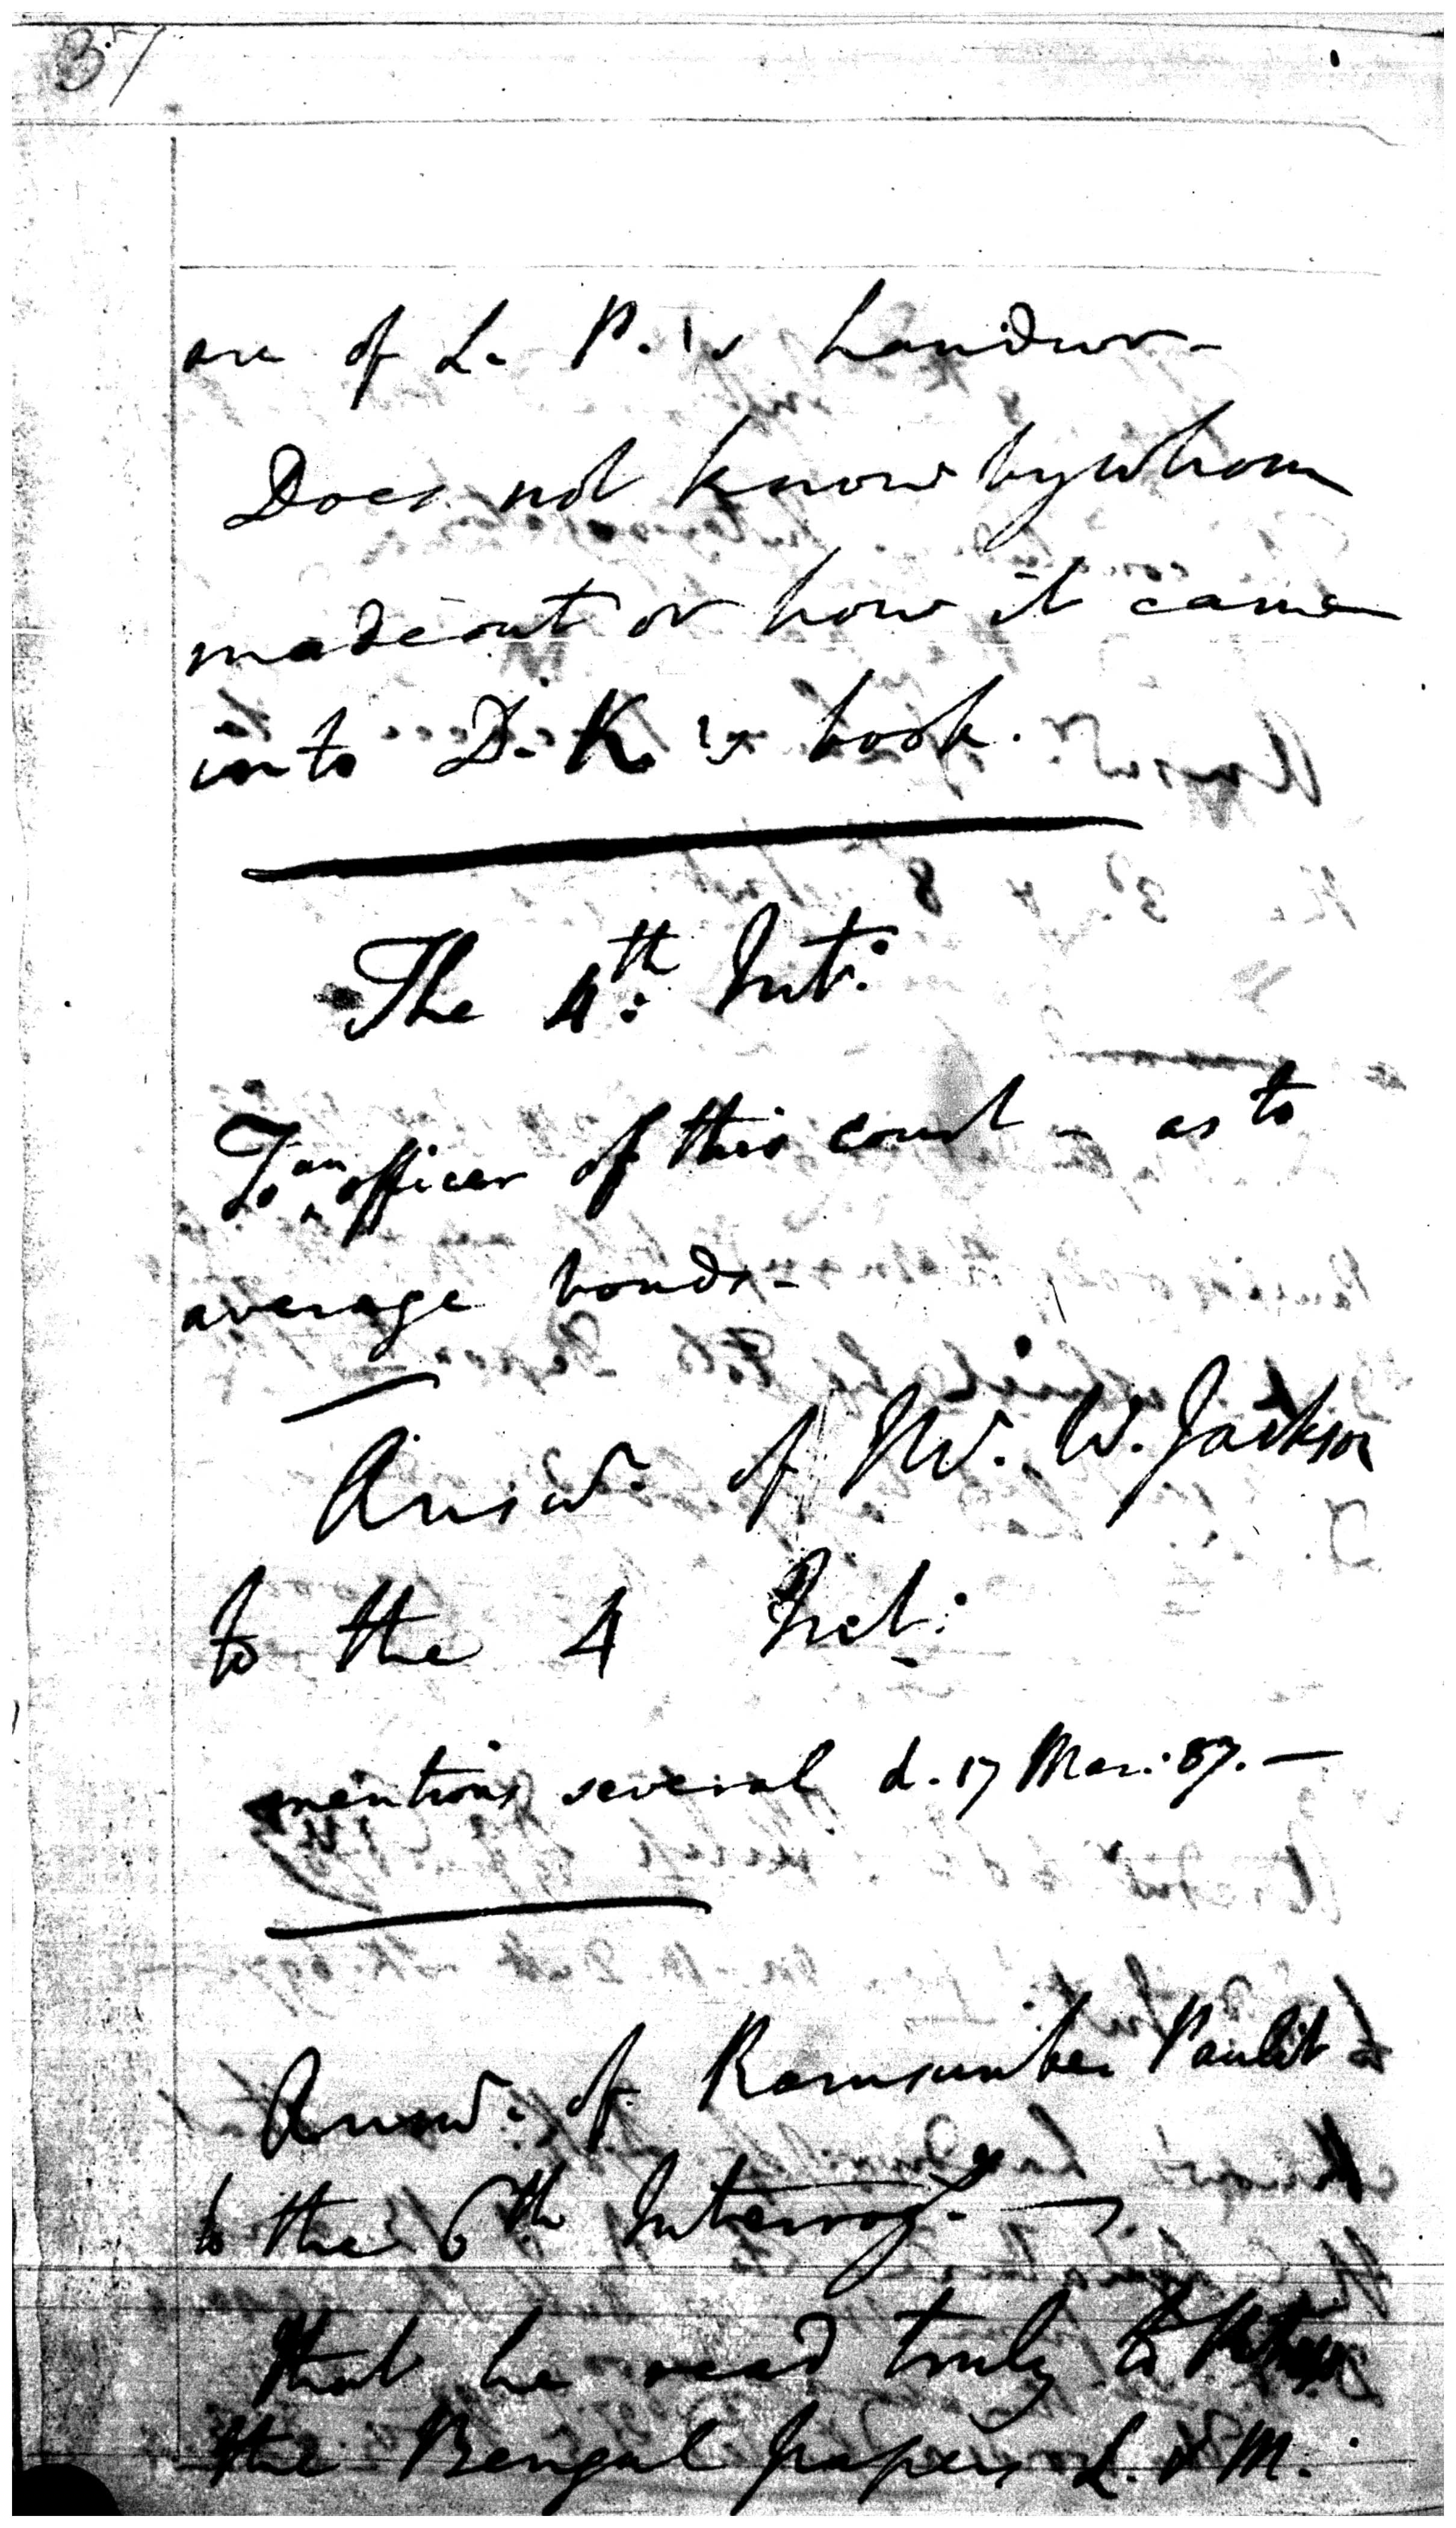 37
are of L. P.'s handwr-
Does not know by whom
made out or how it came
into D. K.'s book.
The 4th Int:
To an officer of this court - as to
average bonds-
Answ. of Mr. W. Jackson
to the 4 Int:
mentions several d. 17 Mar: 87. —
Answ. of Ramsunker Paulit
to the 6th Interrog. —
that he read truly to
the Bengal papers L. & M.